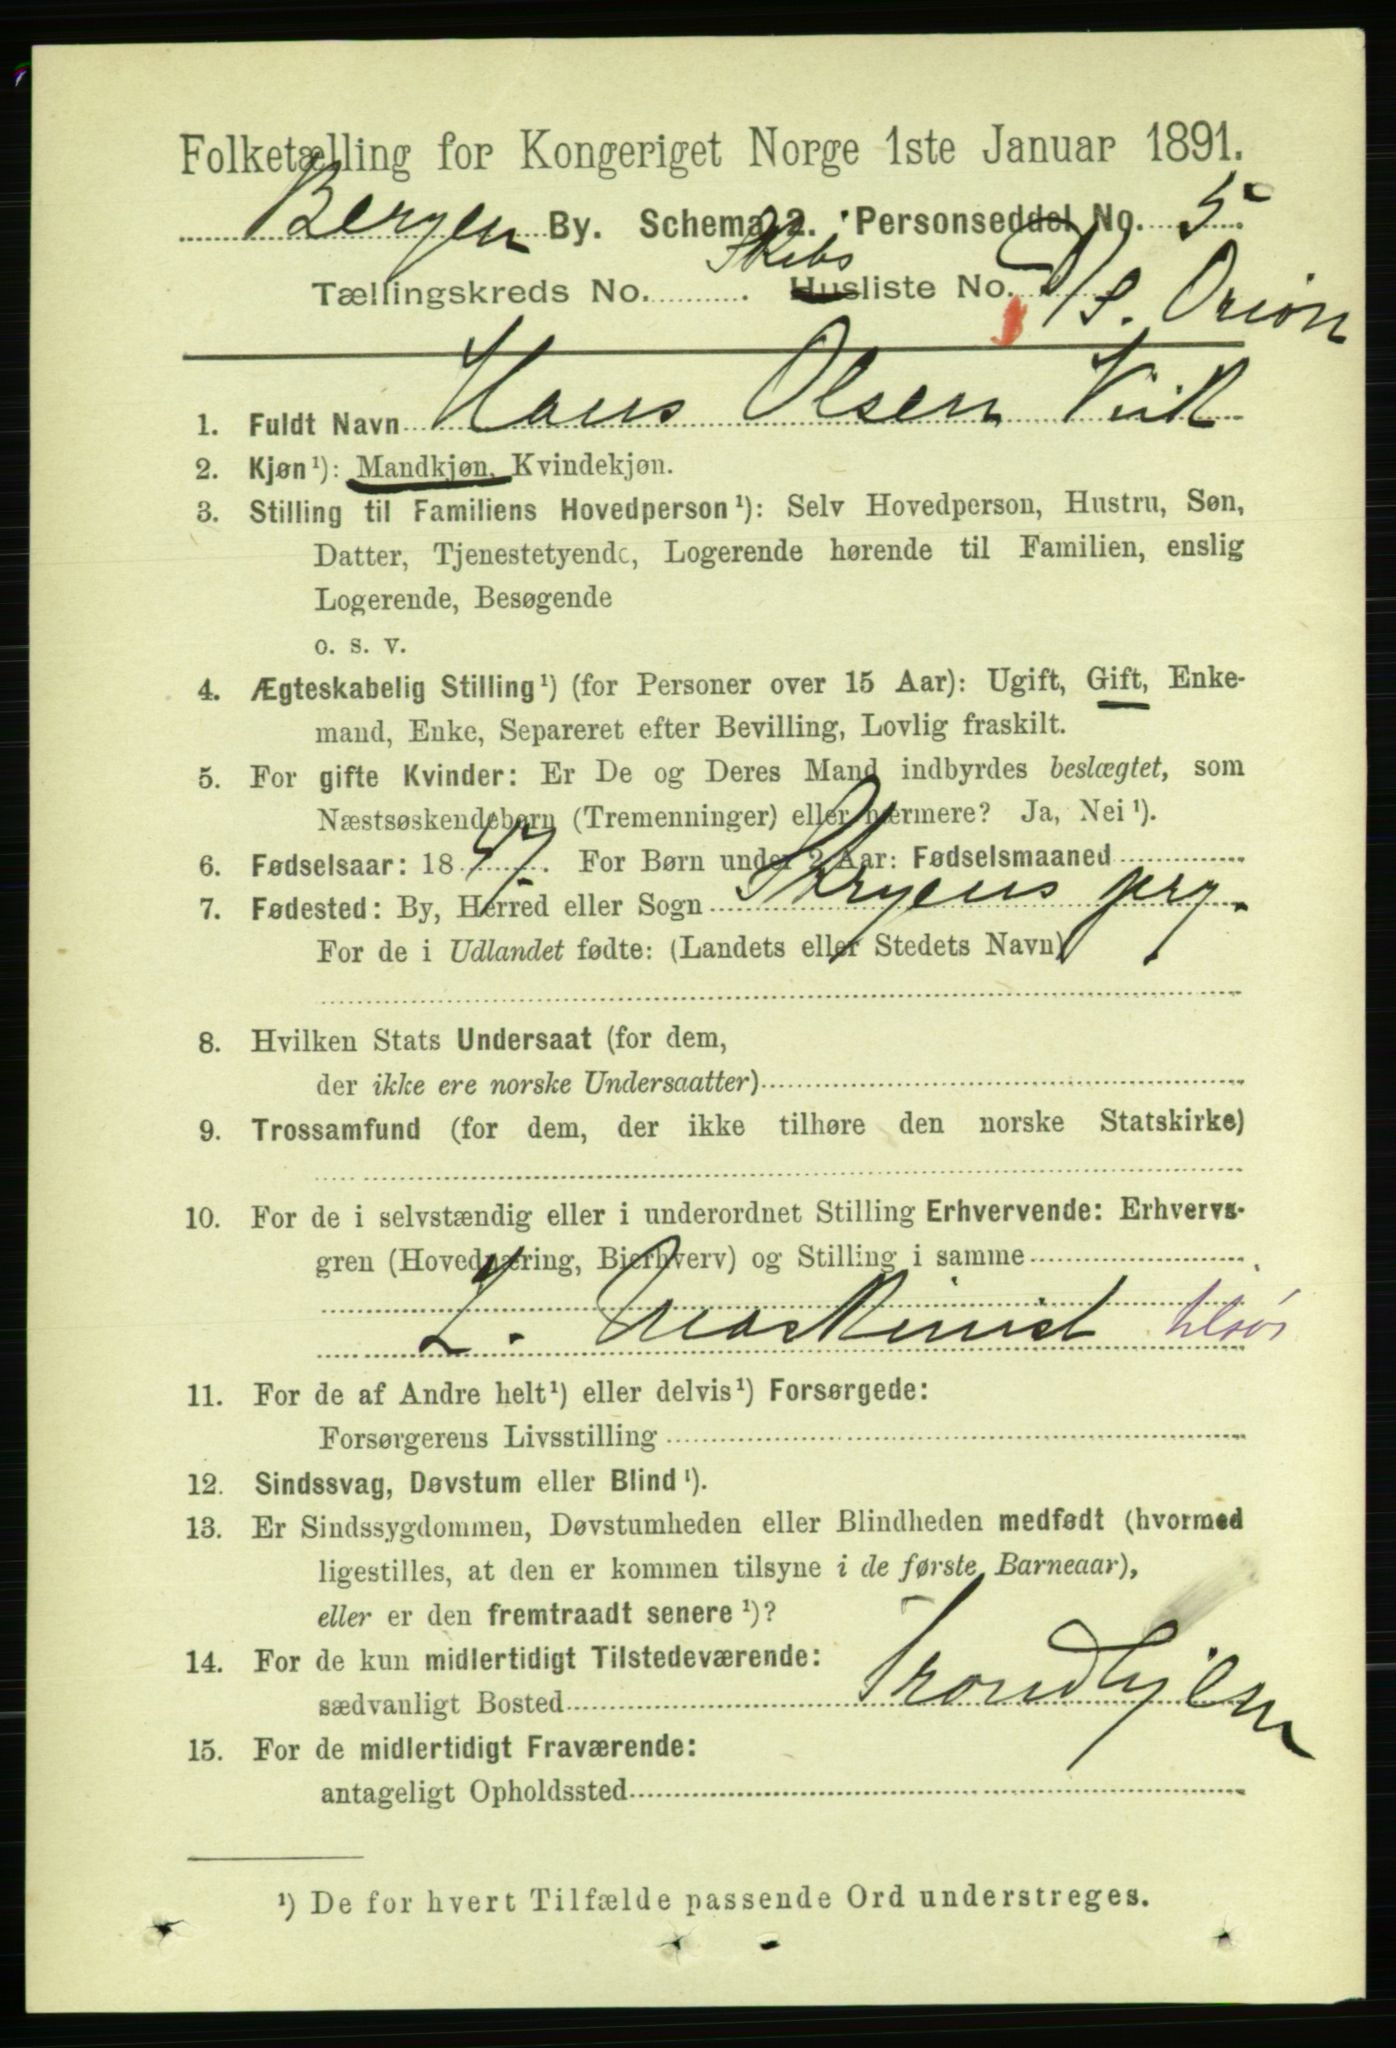 Folketælling for Kongeriget Norge 1ste Januar 1891.
Bergen By. Schema 2. Personseddel No. 5
Tællingskreds No. Skibs Husliste No. D/S. Orion
1. Fuldt Navn Hans Olsen Vik
2. Kjøn ¹): Mandkjøn, Kvindekjøn.
3. Stilling til Familiens Hovedperson ¹): Selv Hovedperson, Hustru, Søn,
Datter, Tjenestetyende, Logerende hørende til Familien, enslig
Logerende, Besøgende
o. s. v.
4. Ægteskabelig Stilling ¹) (for Personer over 15 Aar): Ugift, Gift, Enke-
mand, Enke, Separeret efter Bevilling, Lovlig fraskilt.
5. For gifte Kvinder: Er De og Deres Mand indbyrdes beslægtet, som
Næstsøskendebørn (Tremenninger) eller nærmere? Ja, Nei ¹).
6. Fødselsaar: 1847. For Børn under 2 Aar: Fødselsmaaned
7. Fødested: By, Herred eller Sogn prg.
For de i Udlandet fødte: (Landets eller Stedets Navn)
8. Hvilken Stats Undersaat (for dem,
der ikke ere norske Undersaatter)
9. Trossamfund (for dem, der ikke tilhøre den norske Statskirke)
10. For de i selvstændig eller i underordnet Stilling Erhvervende: Erhvervs-
gren (Hovednæring, Bierhverv) og Stilling i samme
2. Maskinist tilsøs
11. For de af Andre helt ¹) eller delvis ¹) Forsørgede:
Forsørgerens Livsstilling
12. Sindssvag, Døvstum eller Blind ¹).
13. Er Sindssygdommen, Døvstumheden eller Blindheden medfødt (hvormed
ligestilles, at den er kommen tilsyne i de første Barneaar),
eller er den fremtraadt senere ¹)?
14. For de kun midlertidigt Tilstedeværende:
sædvanligt Bosted Trondhjem
15. For de midlertidigt Fraværende:
antageligt Opholdssted
¹) De for hvert Tilfælde passende Ord understreges.